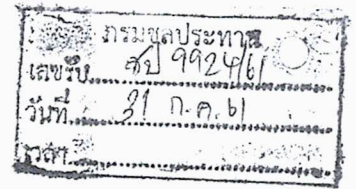 กรมชลประทาน
เลขรับ สป 9924/61
วันที่ 31 ก.ค. 61
เวลา